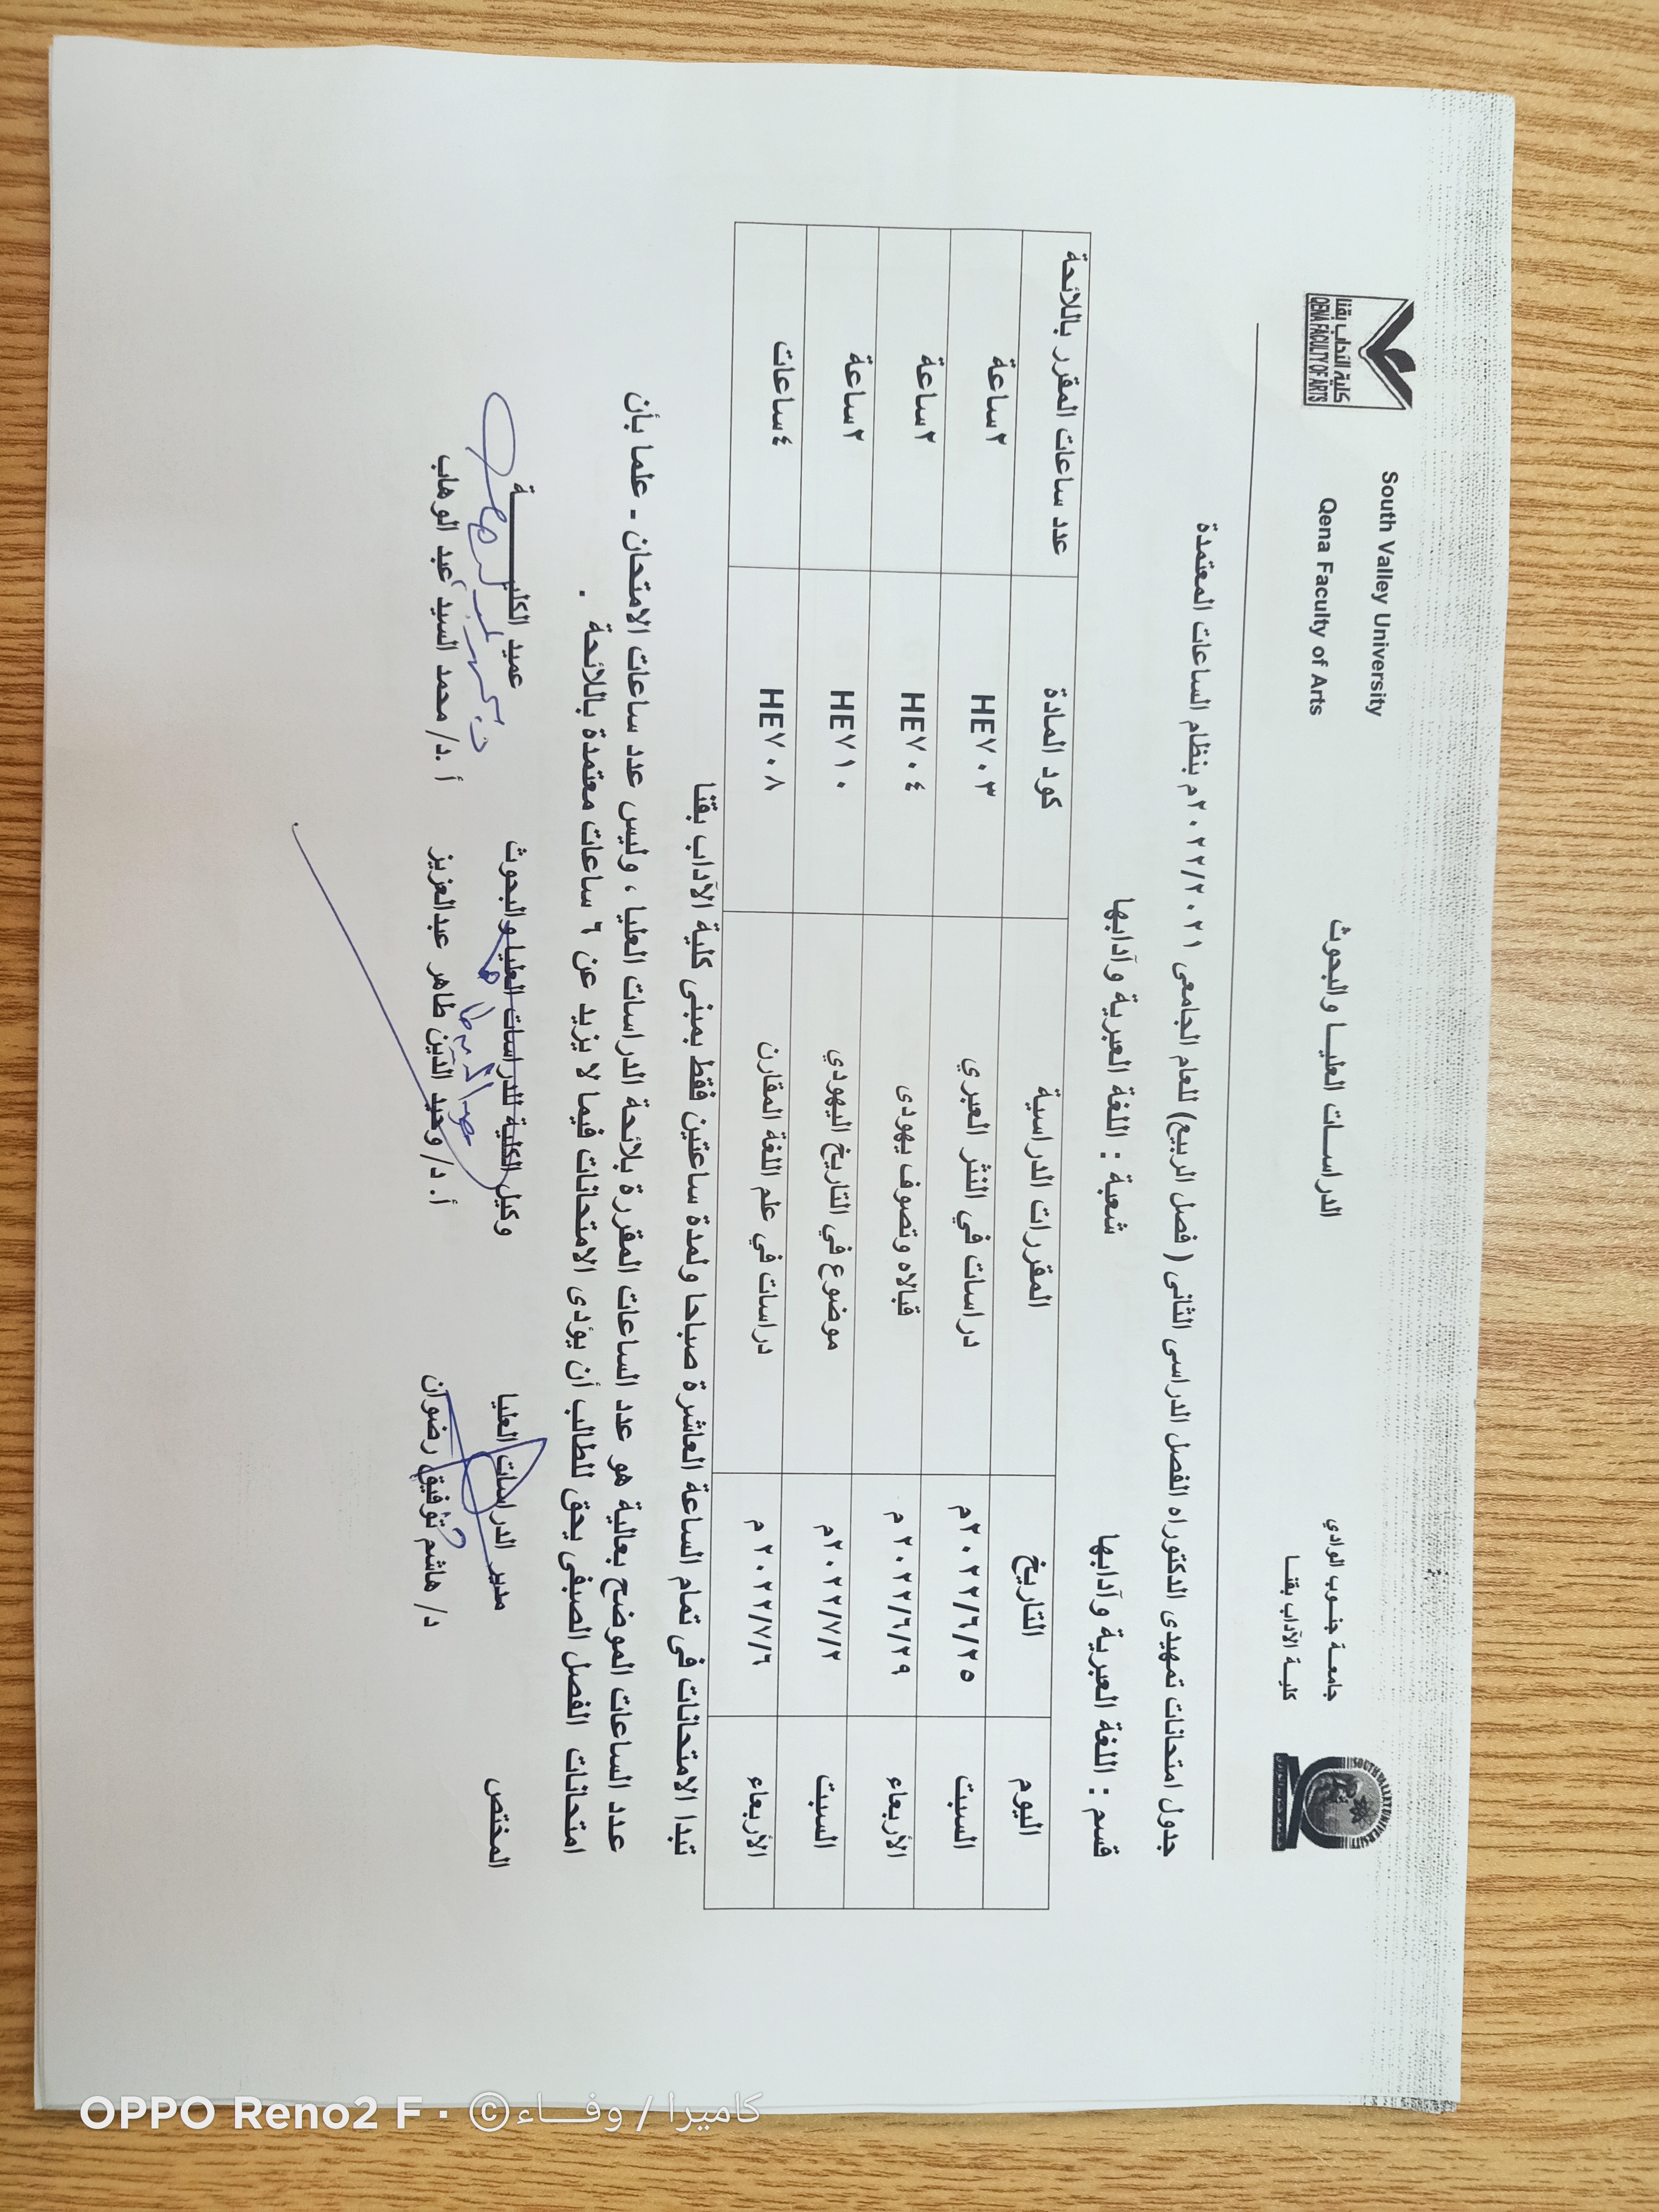 South Valley University
Qena Faculty of Arts
الدراسات العليا والبحوث
جامعة جنوب الوادي
كلية الآداب بقنا
كلية الآداب بقنا
QENA FACULTY OF ARTS
SOUTH VALLEY UNIVERSITY
جدول امتحانات تمهيدى الدكتوراه الفصل الدراسى الثانى ( فصل الربيع) للعام الجامعى ٢٠٢٢/٢٠٢١م بنظام الساعات المعتمدة
قسم : اللغة العبرية وآدابها شعبة : اللغة العبرية وآدابها
اليوم التاريخ المقررات الدراسية كود المادة عدد ساعات المقرر باللائحة
السبت ٢٠٢٢/٦/٢٥م دراسات في النثر العبري HE٧٠٣ ٢ساعة
الأربعاء ٢٠٢٢/٦/٢٩ م قبالاه وتصوف يهودى HE٧٠٤ ٢ساعة
السبت ٢٠٢٢/٧/٢م موضوع في التاريخ اليهودي HE٧١٠ ٢ساعة
الأربعاء ٢٠٢٢/٧/٦ م دراسات في علم اللغة المقارن HE٧٠٨ ٤ساعات
تبدا الامتحانات فى تمام الساعة العاشرة صباحا ولمدة ساعتين فقط بمبنى كلية الآداب بقنا
عدد الساعات الموضح بعالية هو عدد الساعات المقررة بلائحة الدراسات العليا ، وليس عدد ساعات الامتحان - علما بأن
امتحانات الفصل الصيفى يحق للطالب أن يؤدى الامتحانات فيما لا يزيد عن ٦ ساعات معتمدة باللائحة .
المختص مدير الدراسات العليا وكيل الكلية للدراسات العليا والبحوث عميد الكليـــــــة
د/ هاشم توفيق رضوان أ. د/ وحيد الدين طاهر عبدالعزيز أ .د/ محمد السيد عبد الوهاب
OPPO Reno2 F · © كاميرا / وفـــاء